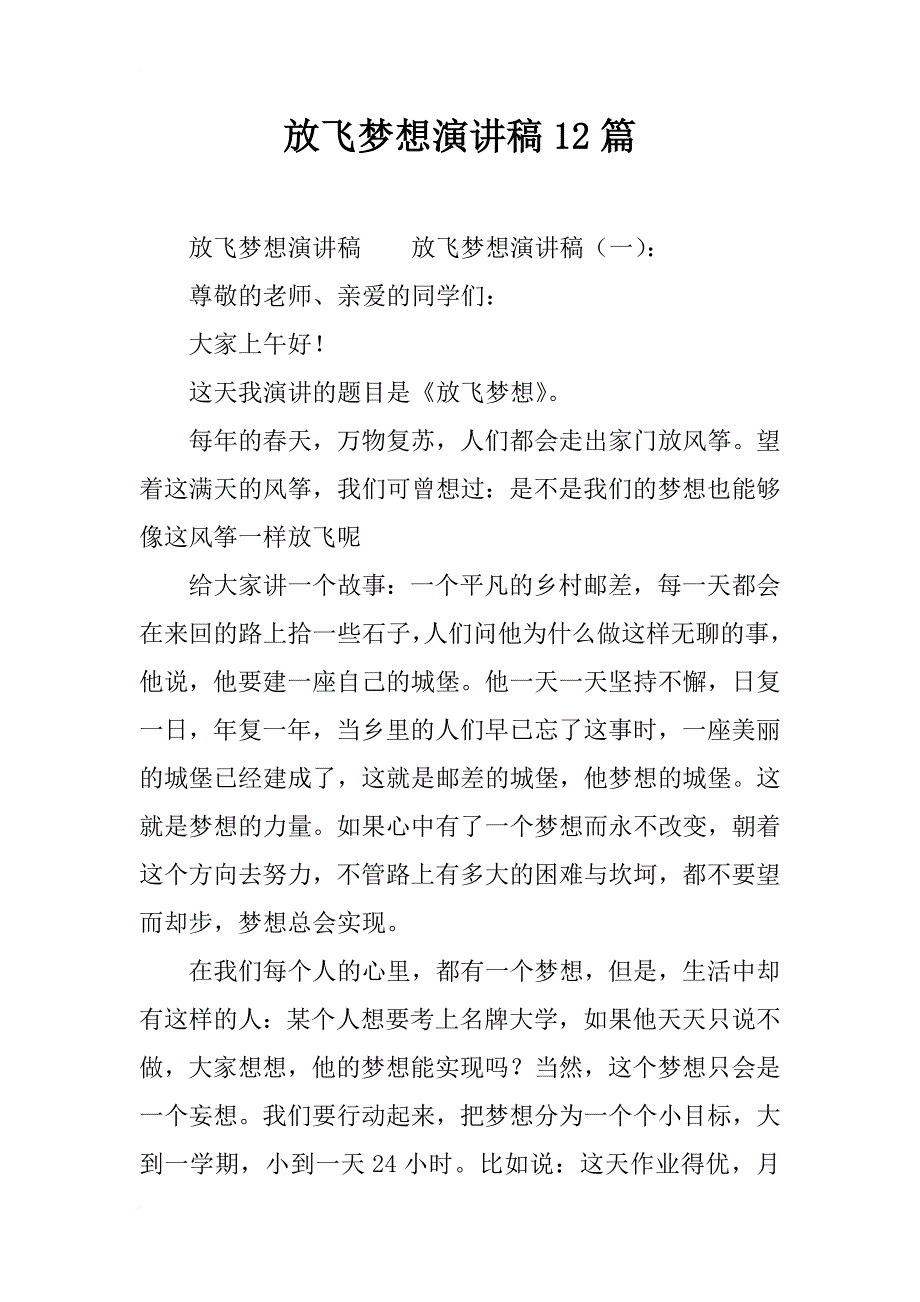 放飞梦想演讲稿12篇
放飞梦想演讲稿　　放飞梦想演讲稿（一）：
尊敬的老师、亲爱的同学们：
大家上午好！
这天我演讲的题目是《放飞梦想》。
每年的春天，万物复苏，人们都会走出家门放风筝。望
着这满天的风筝，我们可曾想过：是不是我们的梦想也能够
像这风筝一样放飞呢
给大家讲一个故事：一个平凡的乡村邮差，每一天都会
在来回的路上拾一些石子，人们问他为什么做这样无聊的事，
他说，他要建一座自己的城堡。他一天一天坚持不懈，日复
一日，年复一年，当乡里的人们早已忘了这事时，一座美丽
的城堡已经建成了，这就是邮差的城堡，他梦想的城堡。这
就是梦想的力量。如果心中有了一个梦想而永不改变，朝着
这个方向去努力，不管路上有多大的困难与坎坷，都不要望
而却步，梦想总会实现。
在我们每个人的心里，都有一个梦想，但是，生活中却
有这样的人：某个人想要考上名牌大学，如果他天天只说不
做，大家想想，他的梦想能实现吗？当然，这个梦想只会是
一个妄想。我们要行动起来，把梦想分为一个个小目标，大
到一学期，小到一天24小时。比如说：这天作业得优，月